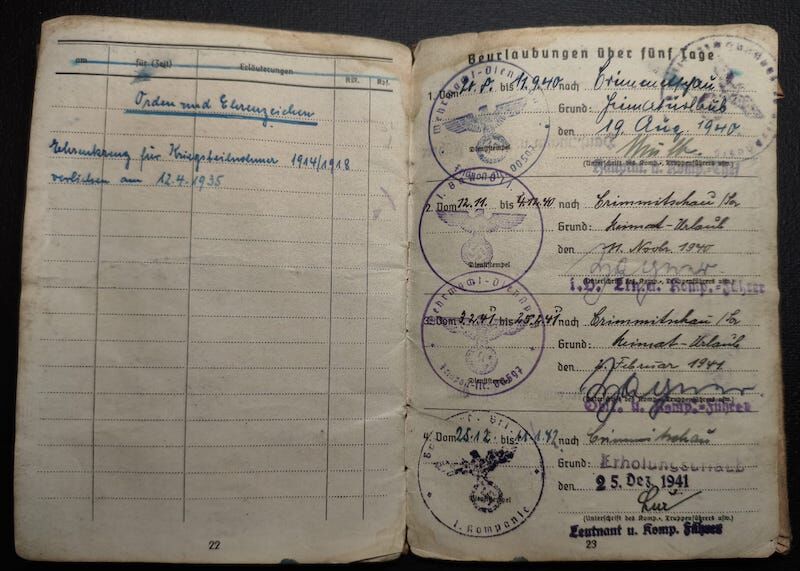 am
für (Zeit)
Erläuterungen
Orden und Ehrenzeichen
Ehrenkreuz für Kriegsteilnehmer 1914/1918
verliehen am 12.4.1935
22
Beurlaubungen über fünf Tage
1. Vom bis 12.9.40 nach
Grund:
den 19. Aug 1940
(Unterschrift des Komp.-, Truppenführers usw.)
Dienststempel
2. Vom 12.11. bis 4.12.40 nach Crimmitschau/Sa
Grund: Heimat-Urlaub
den 11. Novbr. 1940
Dienststempel
i.V. Komp.-Führer
3. Vom 3.2.41 bis nach Crimmitschau/Sa
Grund: Heimat-Urlaub
den Februar 1941
(Unterschrift des Komp.-, Truppenführers usw.)
u. Komp.-Führer
Dienststempel
Feldpost-Nr. 00597
4. Vom 25.12. bis 11.1.42 nach Crimmitschau
Grund: Erholungsurlaub
den 25. Dez. 1941
Dienststempel
1. Kompanie
(Unterschrift des Komp.-, Truppenführers usw.)
Leutnant u. Komp. Führer
23